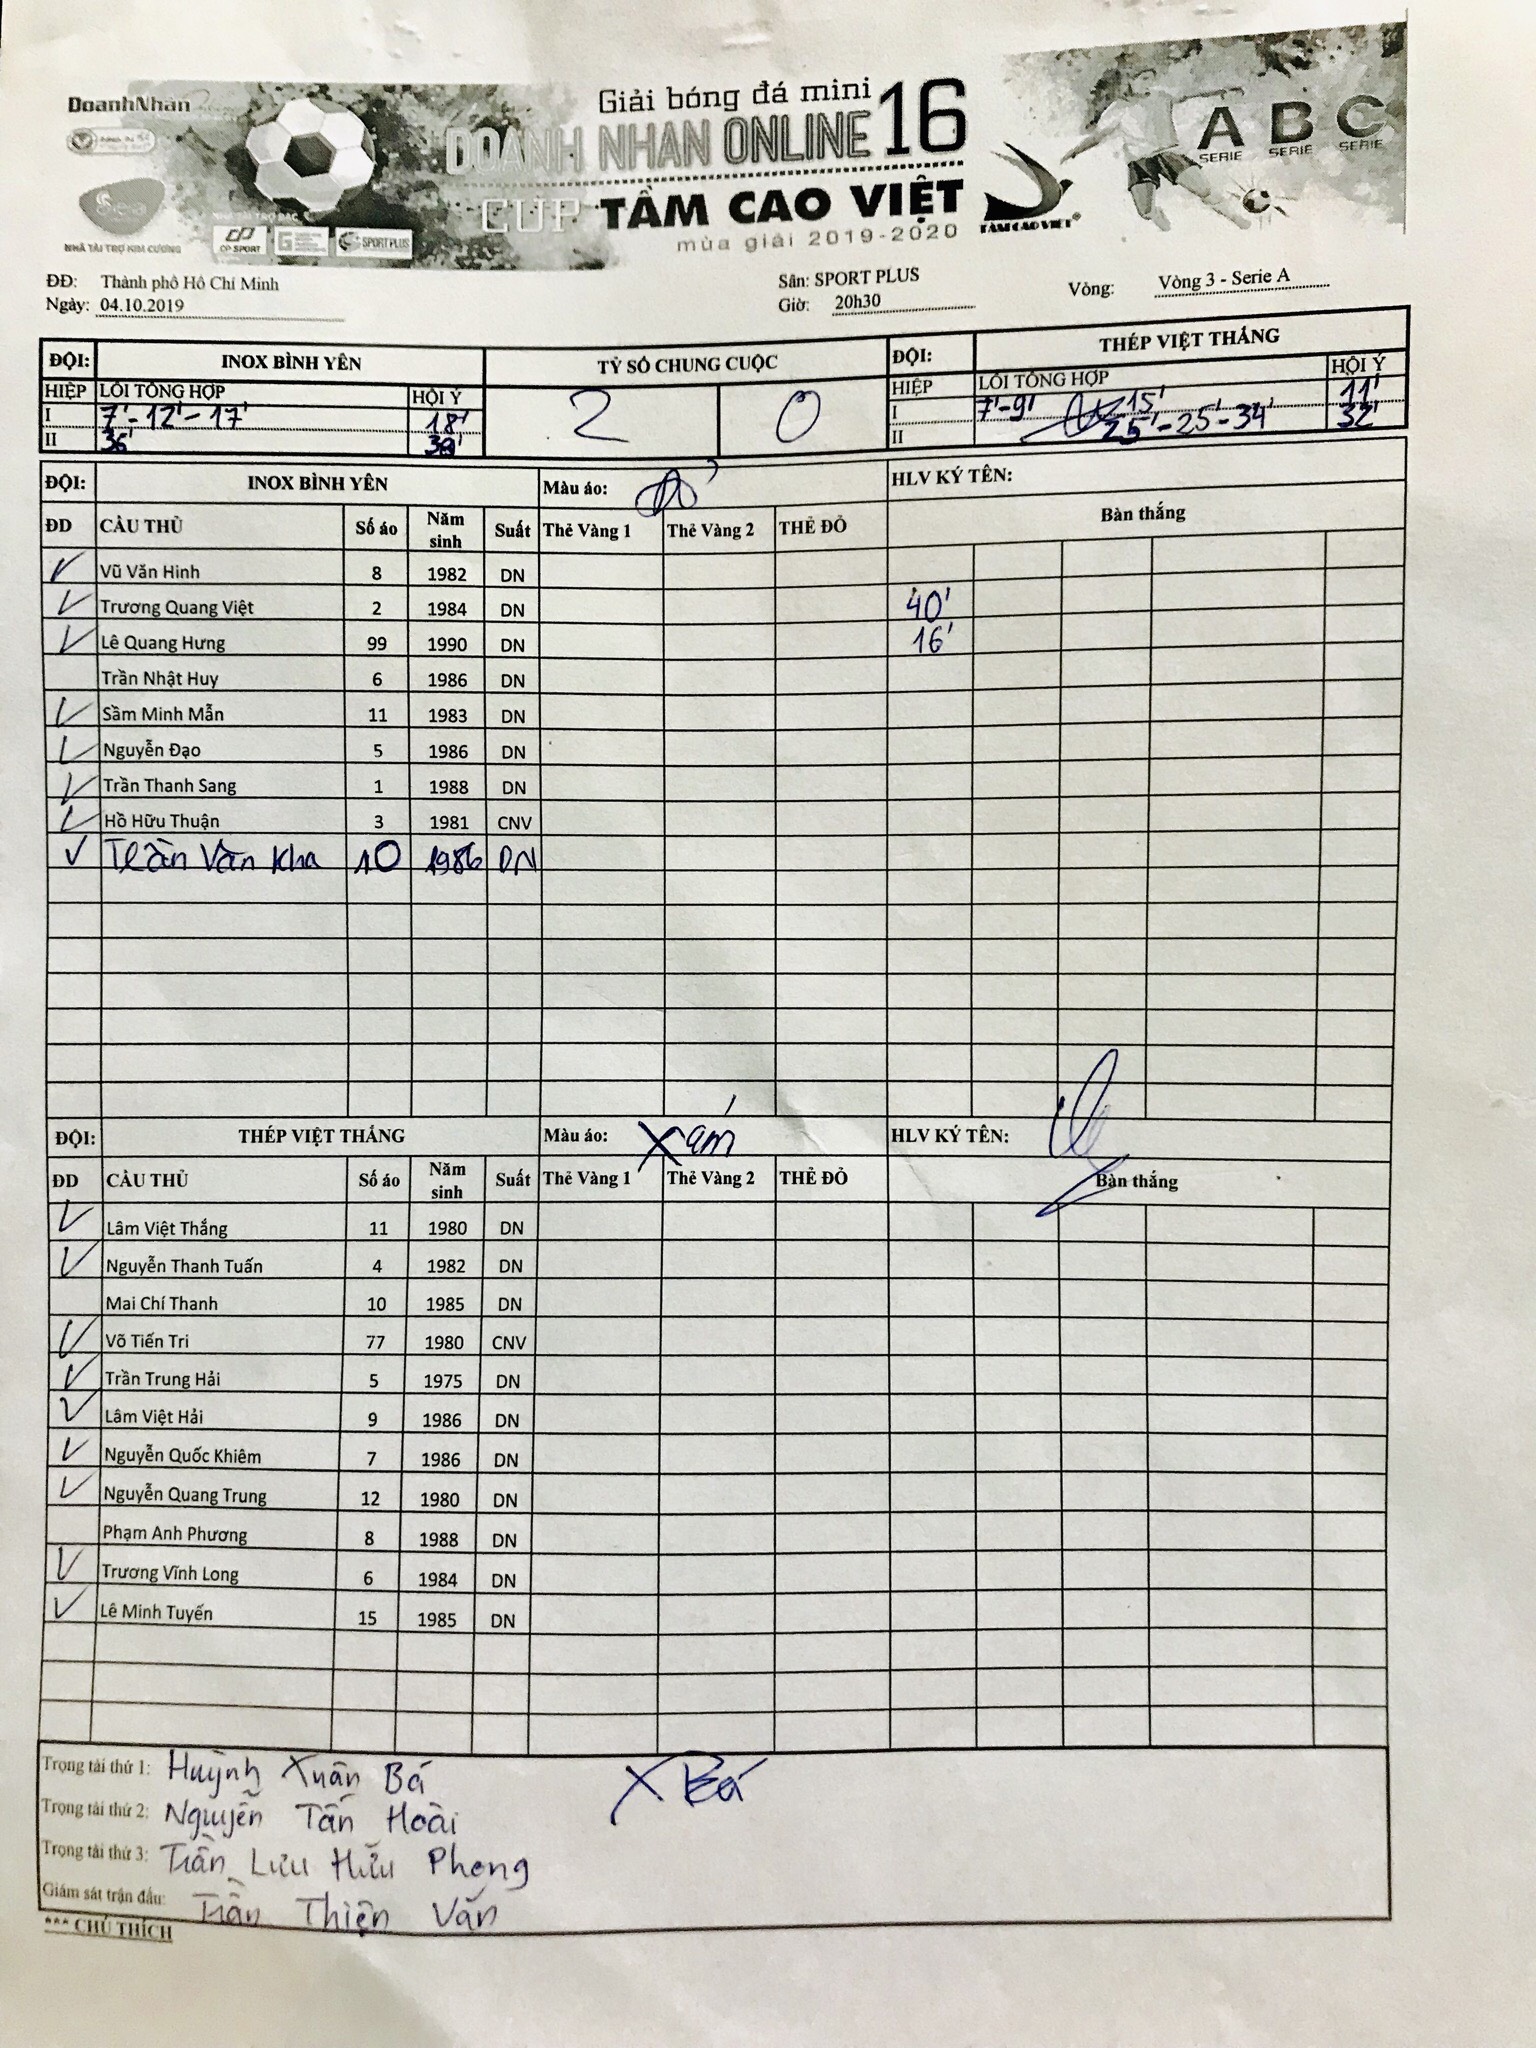 DoanhNhân
Giải bóng đá mini
DOANH NHAN ONLINE 16
CUP TẦM CAO VIỆT
mùa giải 2019-2020
TẦM CAO VIỆT®
A B C
SERIE SERIE SERIE
NHÀ TÀI TRỢ KIM CƯƠNG
NHÀ TÀI TRỢ BẠC
CP SPORT
SPORT PLUS
ĐĐ: Thành phố Hồ Chí Minh Sân: SPORT PLUS Vòng: Vòng 3 - Serie A
Ngày: 04.10.2019 Giờ: 20h30
ĐỘI: INOX BÌNH YÊN TỶ SỐ CHUNG CUỘC ĐỘI: THÉP VIỆT THẮNG
HIỆP LỖI TỔNG HỢP HỘI Ý 2 0 HIỆP LỖI TỔNG HỢP HỘI Ý
I 7'-12'-17' 18' I 7'-9' 15' 11'
II 36' II 25'-25'-34' 32'
ĐỘI: INOX BÌNH YÊN Màu áo: Đỏ HLV KÝ TÊN:
ĐD CẦU THỦ Số áo Năm sinh Suất Thẻ Vàng 1 Thẻ Vàng 2 THẺ ĐỎ Bàn thắng
Vũ Văn Hinh 8 1982 DN
Trương Quang Việt 2 1984 DN 40'
Lê Quang Hưng 99 1990 DN 16'
Trần Nhật Huy 6 1986 DN
Sầm Minh Mẫn 11 1983 DN
Nguyễn Đạo 5 1986 DN
Trần Thanh Sang 1 1988 DN
Hồ Hữu Thuận 3 1981 CNV
Trần Văn Kha 10 1986 DN
ĐỘI: THÉP VIỆT THẮNG Màu áo: Xám HLV KÝ TÊN:
ĐD CẦU THỦ Số áo Năm sinh Suất Thẻ Vàng 1 Thẻ Vàng 2 THẺ ĐỎ Bàn thắng
Lâm Việt Thắng 11 1980 DN
Nguyễn Thanh Tuấn 4 1982 DN
Mai Chí Thanh 10 1985 DN
Võ Tiến Tri 77 1980 CNV
Trần Trung Hải 5 1975 DN
Lâm Việt Hải 9 1986 DN
Nguyễn Quốc Khiêm 7 1986 DN
Nguyễn Quang Trung 12 1980 DN
Phạm Anh Phương 8 1988 DN
Trương Vĩnh Long 6 1984 DN
Lê Minh Tuyến 15 1985 DN
Trọng tài thứ 1: Huỳnh Xuân Bá X Bá
Trọng tài thứ 2: Nguyễn Tấn Hoài
Trọng tài thứ 3: Trần Lưu Hữu Phong
Giám sát trận đấu: Trần Thiện Văn
*** CHÚ THÍCH